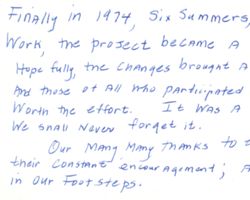 Finally in 1974, Six Summers,
Work, the project became a
Hopefully, the changes brought a
And those of all who participated
Worth the effort. It was a
We shall never forget it.
Our Many Many thanks to t
their constant encouragement; a
in our footsteps.